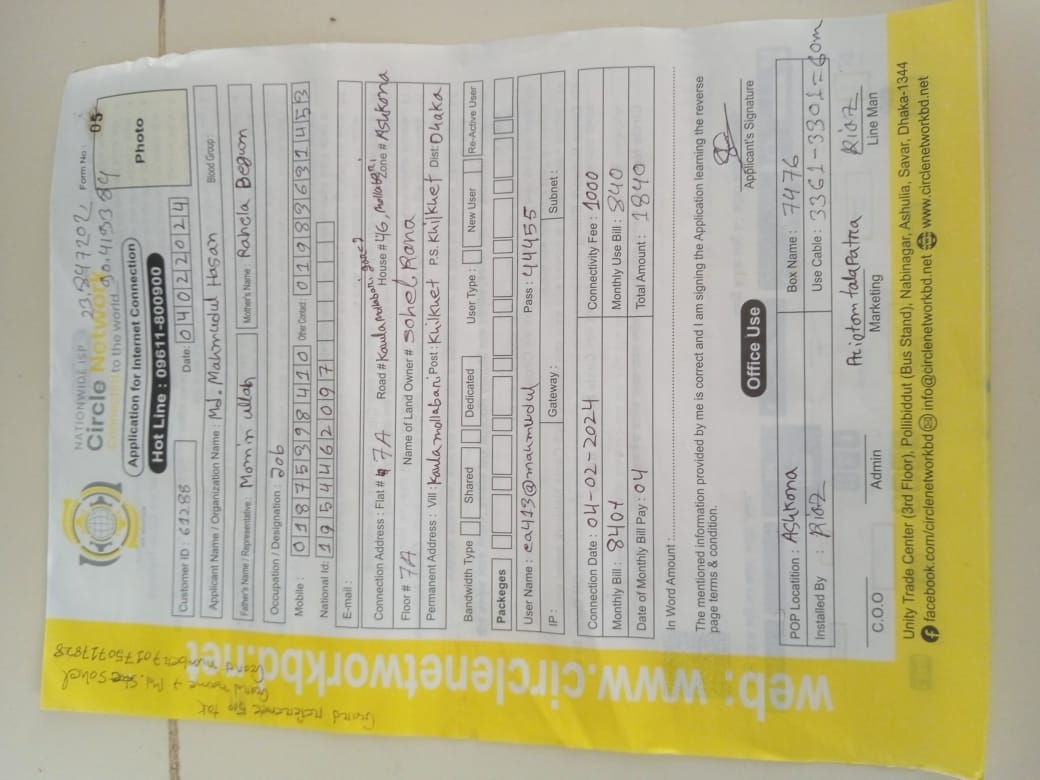 NATIONWIDE ISP 23.847202 Form No : 05
Circle Network 90.4193 84
to the world
Application for Internet Connection
Hot Line : 09611-800900
Photo
Customer ID : 61288 Date: 04022024
Applicant Name / Organization Name : Md. Mahmudul Hasan Blood Group:
Father's Name / Representative : Momin ullah Mother's Name : Rahela Begum
Occupation / Designation : Job
Mobile : 01875398410 Other Contact : 01983631453
National Id: 1954462097
E-mail :
Connection Address : Flat # 7A Road # Kaula mollabari House # 46, mollabari Zone # Ashkona
Floor # 7A Name of Land Owner # Sohel Rana
Permanent Address : Vill : Kaula mollabari Post : Khilkhet P.S. Khilkhet Dist: Dhaka
Bandwidth Type Shared Dedicated User Type : New User Re-Active User
Packeges
User Name : ca413@mahmudul Pass : 44455
IP : Gateway : Subnet :
Connection Date : 04-02-2024 Connectivity Fee : 1000
Monthly Bill : 840t Monthly Use Bill : 840
Date of Monthly Bill Pay : 04 Total Amount : 1840
In Word Amount :
The mentioned information provided by me is correct and I am signing the Application learning the reverse
page terms & condition.
Applicant's Signature
Office Use
POP Locatition : Ashkona Box Name : 7476
Installed By : Rioz Use Cable : 3361-3301=60m
Priotom talapatra Rioz
C.O.O Admin Marketing Line Man
Unity Trade Center (3rd Floor), Pollibiddut (Bus Stand), Nabinagar, Ashulia, Savar, Dhaka-1344
facebook.com/circlenetworkbd info@circlenetworkbd.net www.circlenetworkbd.net
web: www.circlenetworkbd.net
Guard reference 500 tak
Guard name → Md. Sohel
Guard number→01750717828